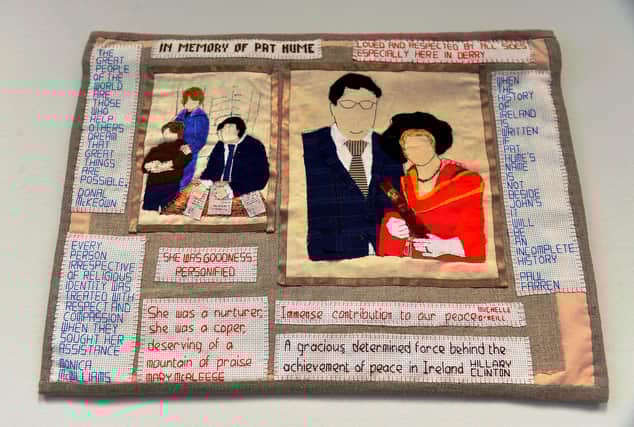 IN MEMORY OF PAT HUME
LOVED AND RESPECTED BY ALL SIDES
ESPECIALLY HERE IN DERRY
THE
GREAT
PEOPLE
OF THE
WORLD
ARE
THOSE
WHO
HELP
OTHERS
DREAM
THAT
GREAT
THINGS
ARE
POSSIBLE.
DONAL
McKEOWN
WHEN
THE
HISTORY
OF
IRELAND
IS
WRITTEN
IF
PAT
HUME'S
NAME
IS
NOT
BESIDE
JOHN'S
IT
WILL
BE
AN
INCOMPLETE
HISTORY
PAUL
FARREN
EVERY
PERSON
IRRESPECTIVE
OF RELIGIOUS
IDENTITY WAS
TREATED WITH
RESPECT AND
COMPASSION
WHEN THEY
SOUGHT HER
ASSISTANCE
MONICA
McWILLIAMS
SHE WAS GOODNESS
PERSONIFIED
She was a nurturer,
she was a coper,
deserving of a
mountain of praise
MARY McALEESE
Immense contribution to our peace MICHELLE
O'NEILL
A gracious determined force behind the
achievement of peace in Ireland HILLARY
CLINTON